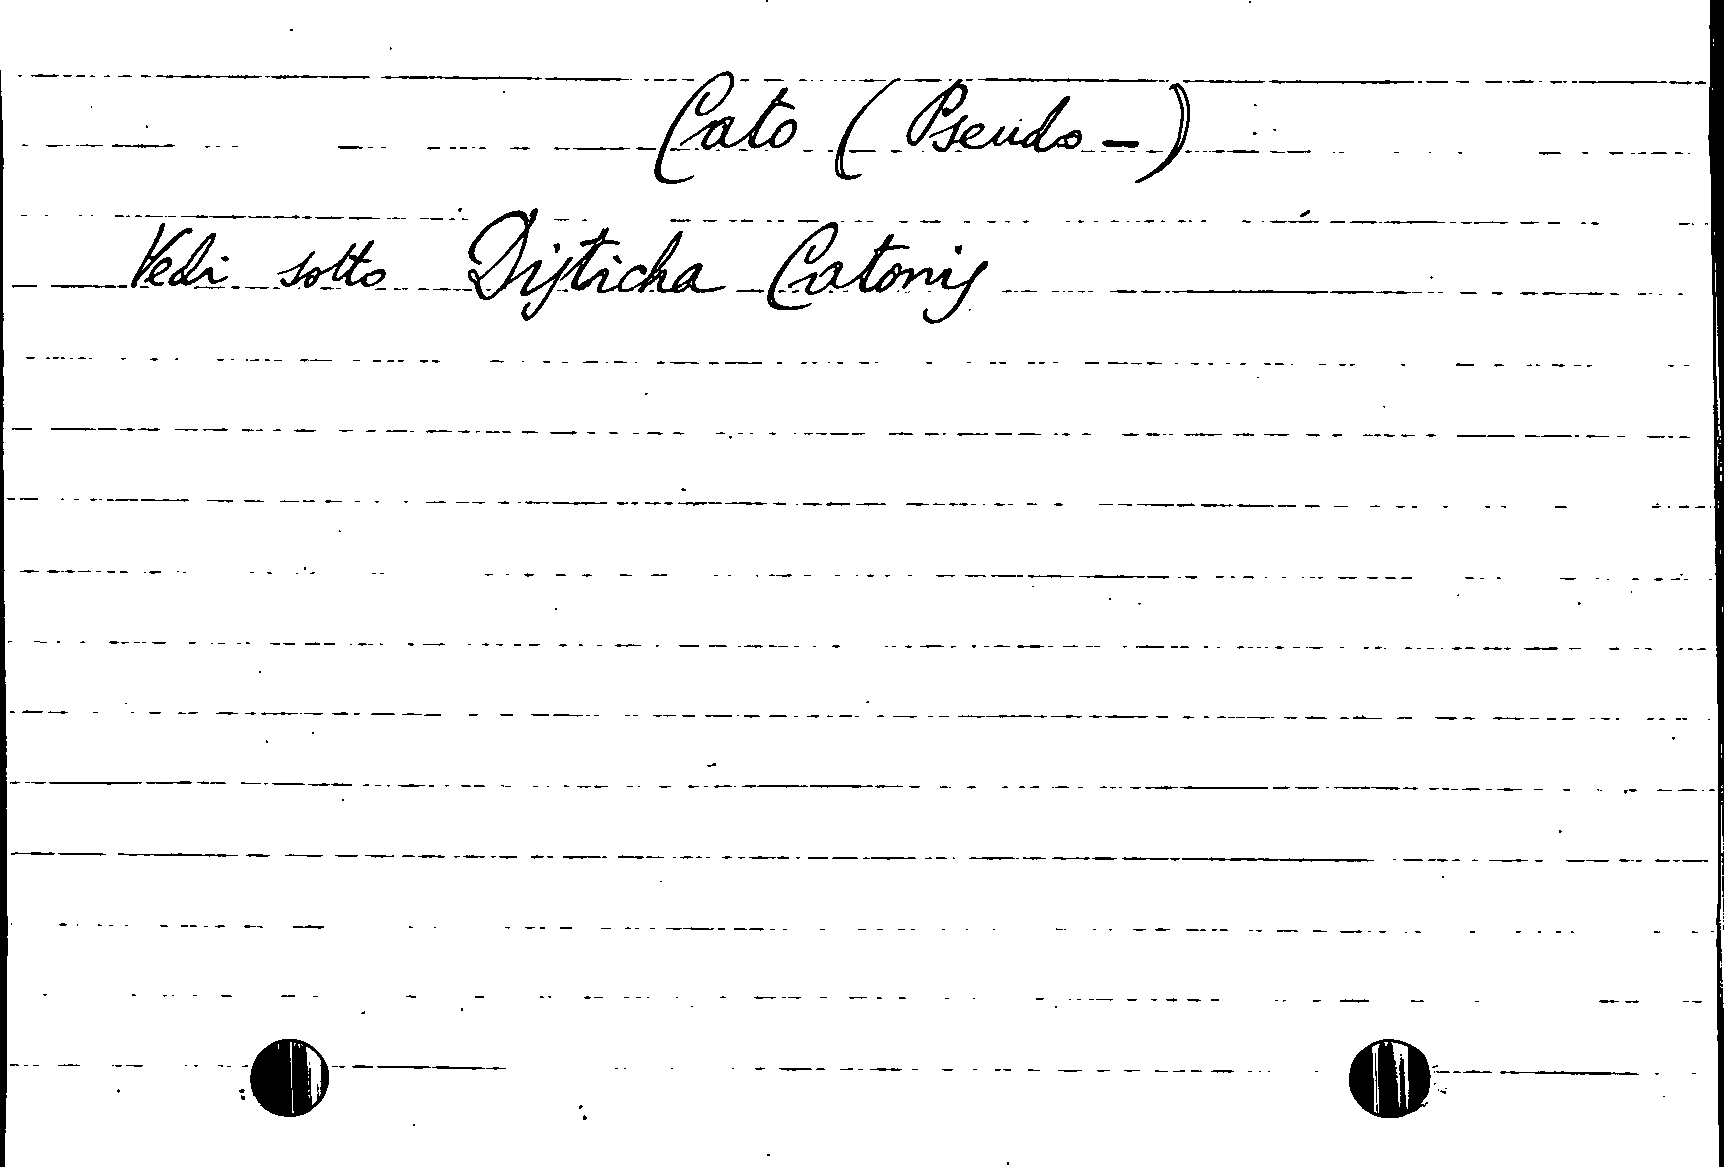 Cato (Pseudo-)
Vedi sotto Disticha Catonis